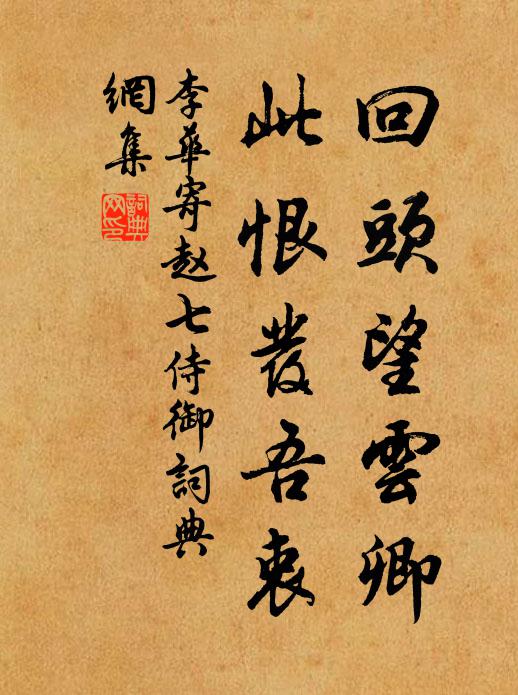 回頭望雲卿
此恨發吾衷
李華寄赵七侍御詞典
網集
詞典
网印